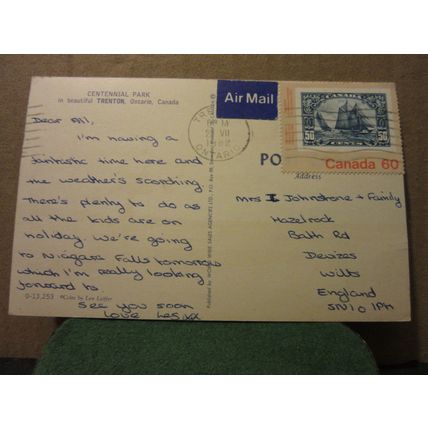 CENTENNIAL PARK
in beautiful TRENTON, Ontario, Canada
Dear All,
I'm having a
fantastic time here and
the weather's scorching.
There's plenty to do as
all the kids are on
holiday. We're going
to Niagara Falls tomorrow
which I'm really looking
forward to
See you soon
Love Les xx
O-13.253 Color by Len Loffer
Air Mail
TRENTON
VII
ONTARIO
CANADA
50 CENTS 50
Canada 60
PO
Address
Mrs I Johnstone + Family
Hazelrock
Bath Rd
Devizes
Wilts
England
SN10 1PH